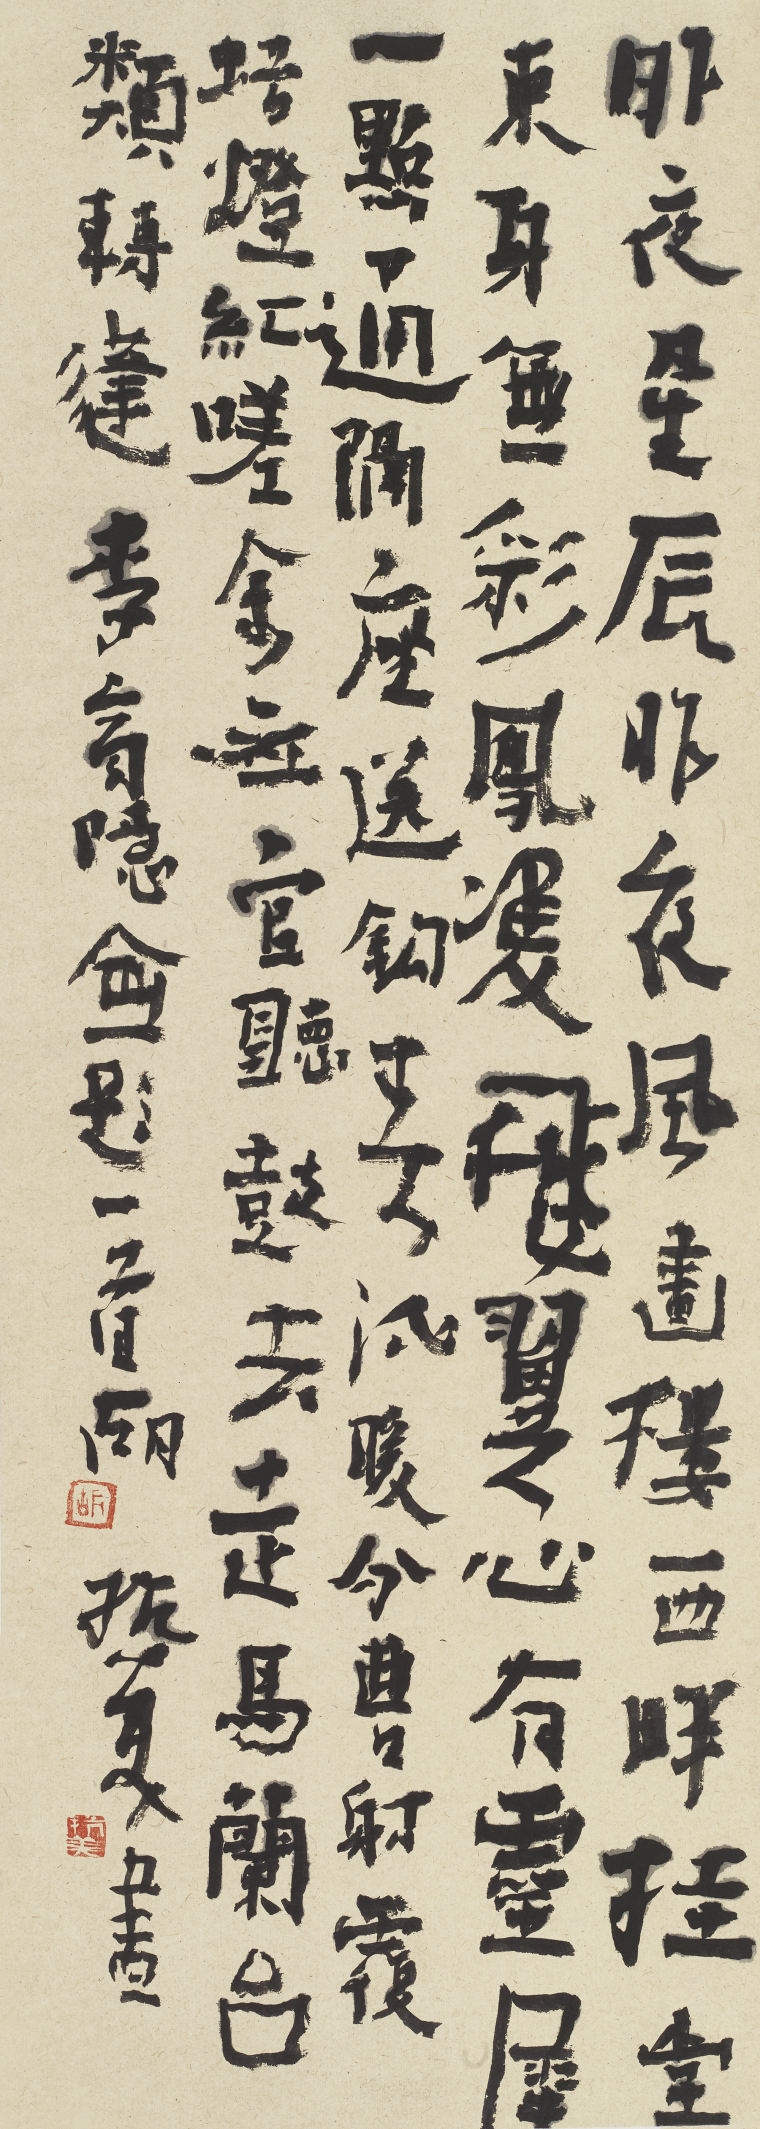 昨夜星辰昨夜風畫樓西畔桂堂
東身無彩鳳雙飛翼心有靈犀
一點通隔座送鉤春酒暖分曹射覆
蜡燈紅嗟余應官聽鼓去走馬蘭台
類轉蓬 李商隱無題一首 胡抗美書
胡
抗美